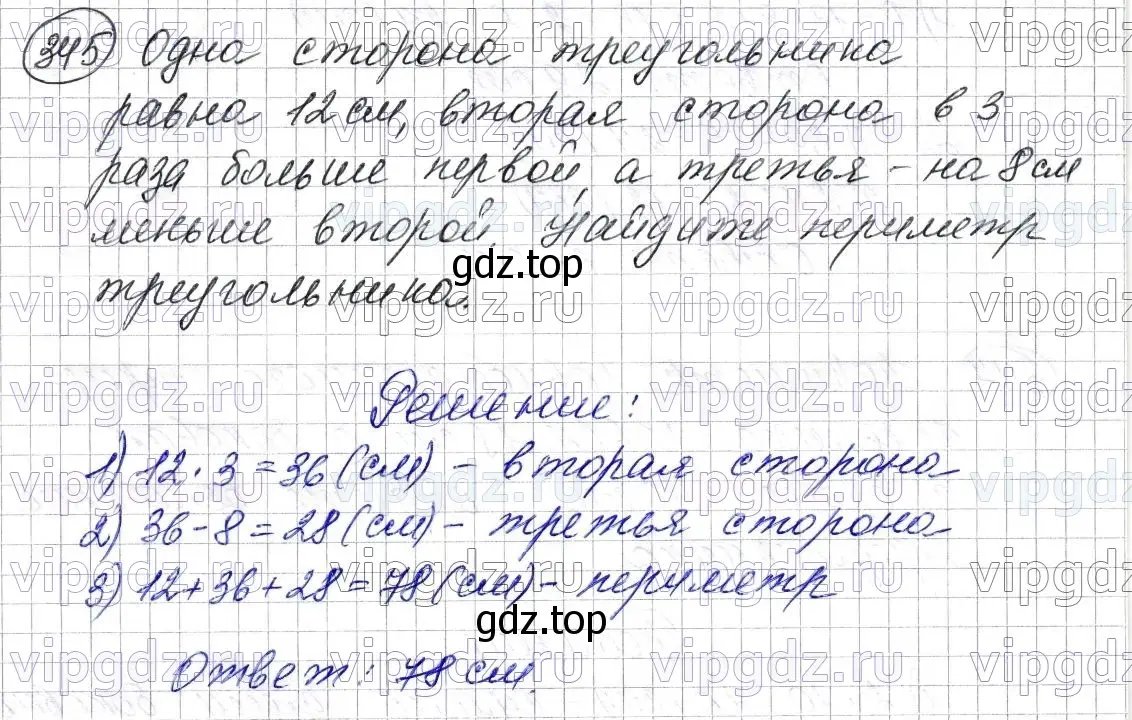 345 Одна сторона треугольника
равна 12 см, вторая сторона в 3
раза больше первой, а третья - на 8 см
меньше второй. Найдите периметр
gdz.top
треугольника.
Решение:
1) 12 · 3 = 36 (см) - вторая сторона
2) 36 - 8 = 28 (см) - третья сторона
3) 12 + 36 + 28 = 78 (см) - периметр
gdz.top
Ответ: 78 см.